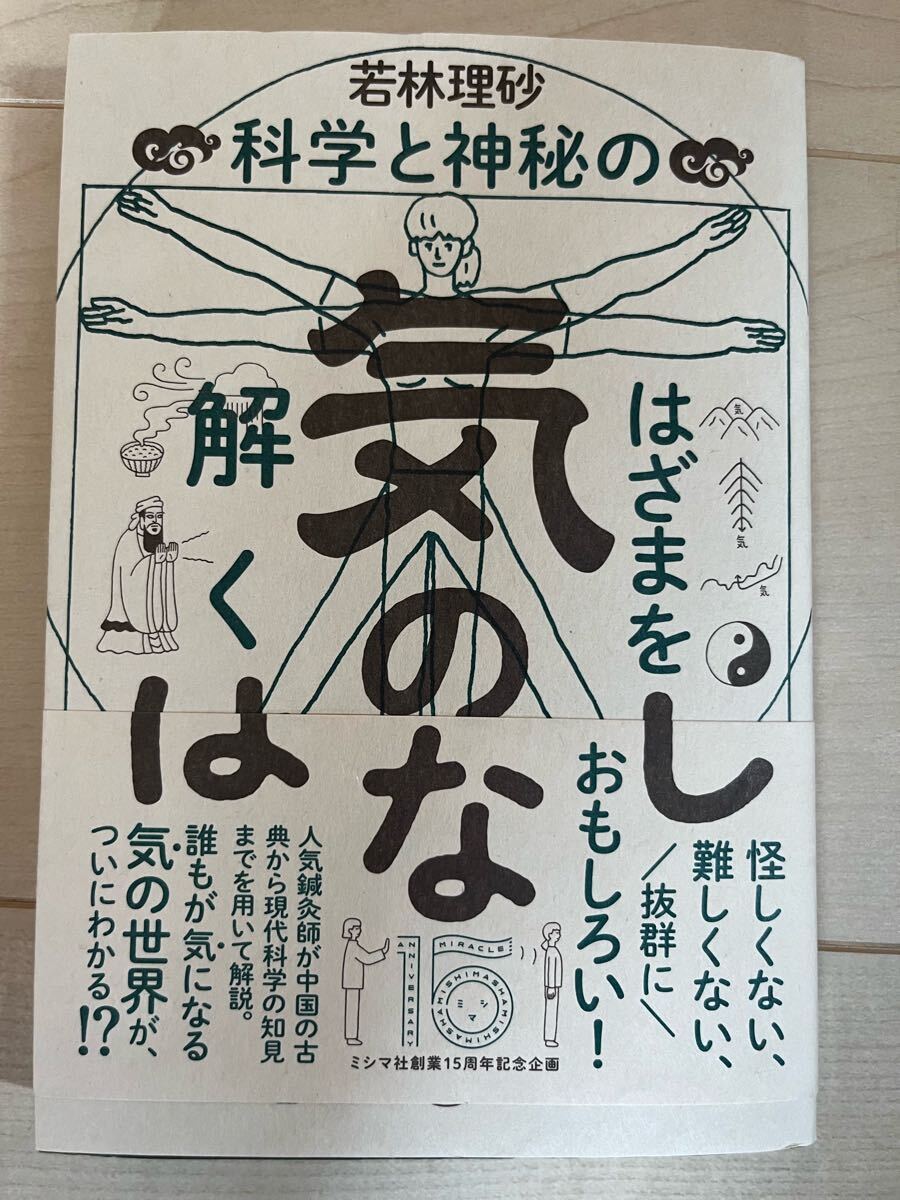 若林理砂
科学と神秘の
はざまを
解く
気のはなし
気
気
気
怪しくない、
難しくない、
抜群に
おもしろい！
人気鍼灸師が中国の古
典から現代科学の知見
までを用いて解説。
誰もが気になる
気の世界が、
ついにわかる!?
MIRACLE
ANNIVERSARY
15
ミシマ
MISHIMASHAMISHIMASHAMISHIMASHA
ミシマ社創業15周年記念企画